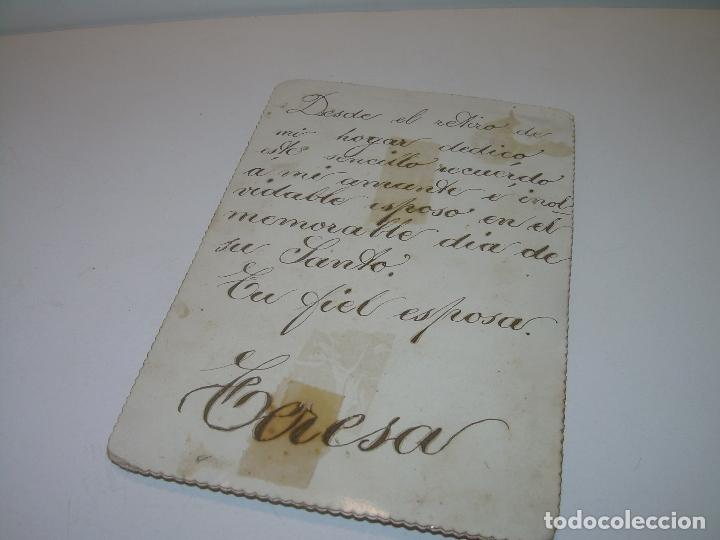 Desde el retiro de
mi hogar dedico
este sencillo recuerdo
á mi amante é inol-
vidable esposo en el
memorable dia de
su Santo.
Tu fiel esposa.
Teresa
todocoleccion